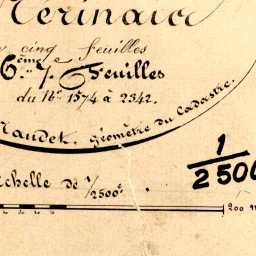 cinq feuilles
6ème f. Feuilles
du N° 1574 à 2342.
Naudet. Géomètre du Cadastre.
1
2500
Echelle de 1/2500e.
200 m